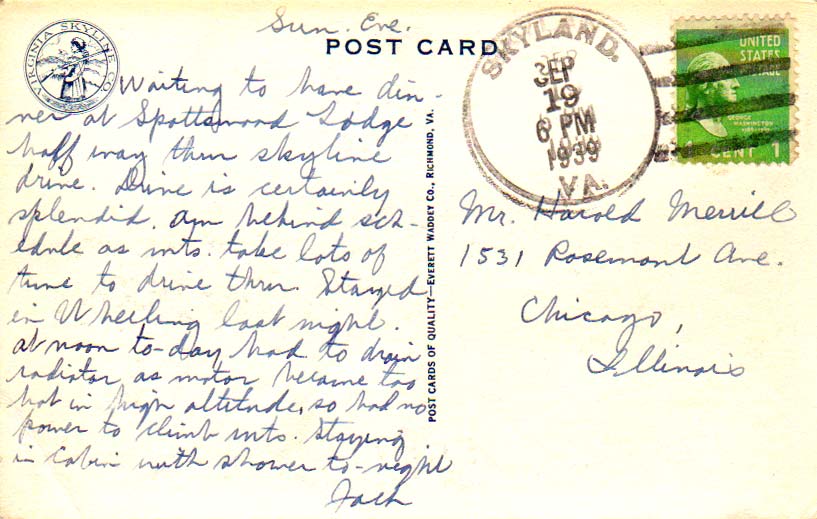 Sun. Eve.
POST CARD
VIRGINIA SKYLINE CO.
Waiting to have din-
ner at Spottswood Lodge
half way thru skyline
drive. Drive is certainly
splendid. Am behind sch-
edule as mts. take lots of
time to drive thru. Stayed
in Wheeling last night.
At noon to-day had to drain
radiator as motor became too
hot in high altitude, so had no
power to climb mts. Staying
in cabin with shower to-night
Jack
POST CARDS OF QUALITY—EVERETT WADDEY CO., RICHMOND, VA.
SKYLAND.
SEP
19
6 PM
1939
VA.
UNITED
STATES
POSTAGE
GEORGE
WASHINGTON
1 CENT 1
Mr. Harold Merrill
1531 Rosemont Ave.
Chicago,
Illinois